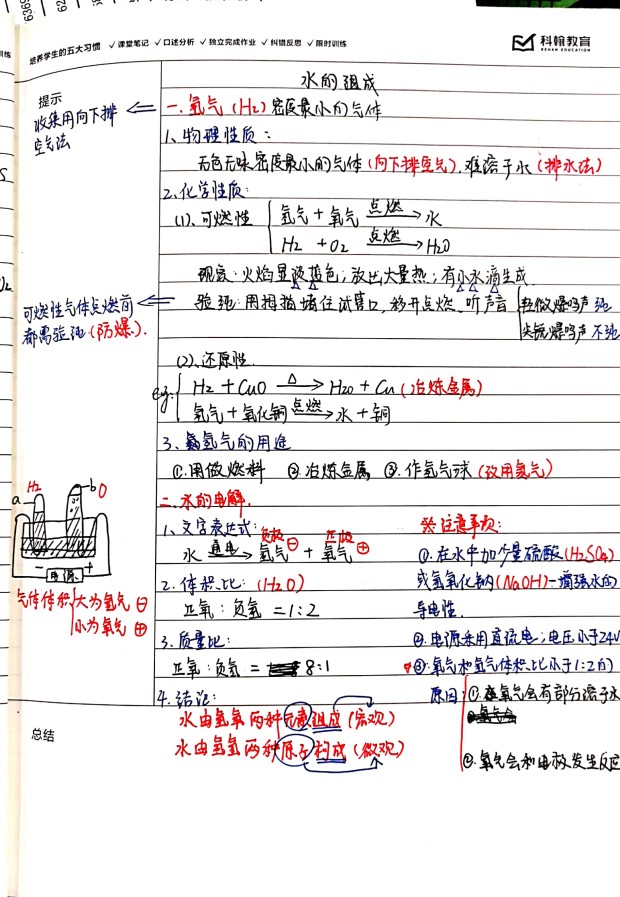 培养学生的五大习惯 ✓课堂笔记 ✓口述分析 ✓独立完成作业 ✓纠错反思 ✓限时训练
科翰教育
KEHAN EDUCATION
水的组成
提示
收集用向下排
空气法
一.氢气(H₂)密度最小的气体
1、物理性质:
无色无味密度最小的气体(向下排空气).难溶于水(排水法)
2、化学性质:
(1)、可燃性
氢气+氧气 点燃→ 水
H₂ +O₂ 点燃→ H₂O
现象:火焰呈淡蓝色;放出大量热;有小水滴生成.
可燃性气体点燃前
都需验纯(防爆).
验纯:用拇指堵住试管口,移开点燃.听声音
轻微爆鸣声 纯
尖锐爆鸣声 不纯
(2)、还原性.
eg:
H₂+CuO △→ H₂O+Cu(冶炼金属)
氢气+氧化铜 点燃→ 水+铜
3、氢气的用途
①.用做燃料 ②冶炼金属 ③.作氢气球(改用氦气)
二.水的电解.
a H₂ b O
- 电源 +
气体体积
大为氢气 ⊖
小为氧气 ⊕
1、文字表达式:
负极 正极
水 通电→ 氢气⊖ + 氧气⊕
2、体积比:(H₂O)
正氧:负氢=1:2
3、质量比:
正氧:负氢= 8:1
4.结论:
水由氢氧两种元素组成(宏观)
水由氢氧两种原子构成(微观)
※注意事项:
①.在水中加少量硫酸(H₂SO₄)
或氢氧化钠(NaOH)-增强水的
导电性.
②.电源采用直流电;电压小于24V
③.氧气和氢气体积比小于1:2的
原因:①.氧气会有部分溶于水
②.氧气会和电极发生反应
总结